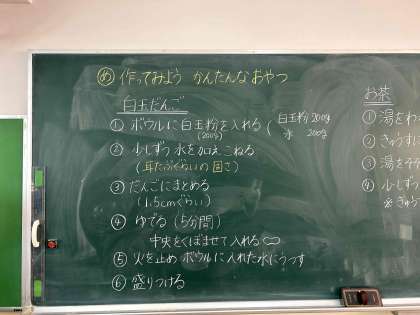 め 作ってみよう かんたんなおやつ
白玉だんご
① ボウルに白玉粉を入れる
(200g)
(白玉粉 200g
水 200g
② 少しずつ水を加えこねる
(耳たぶぐらいの固さ)
③ だんごにまとめる
(1.5cmぐらい)
④ ゆでる (5分間)
中央をくぼませて入れる
⑤ 火を止め ボウルに入れた水にうつす
⑥ 盛りつける
お茶
① 湯をわ
② きゅうすに
③ 湯をそそ
④ 少しず
※きゅう